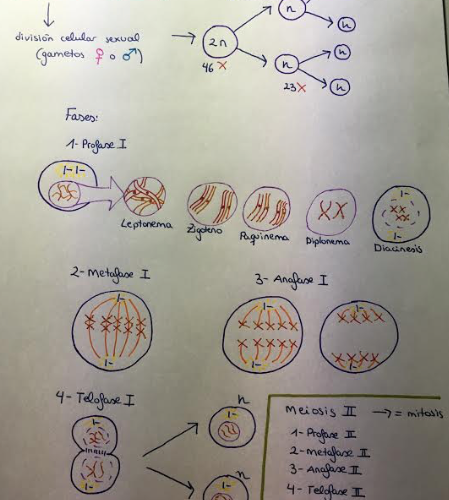 división celular sexual
(gametos ♀ o ♂)
2n
46 X
n
n
n
n
n
23 X
Fases:
1- Profase I
Leptonema
Zigoteno
Paquinema
Diplonema
Diacinesis
2- Metafase I
3- Anafase I
4- Telofase I
n
n
Meiosis II → = mitosis
1- Profase II
2- Metafase II
3- Anafase II
4- Telofase II